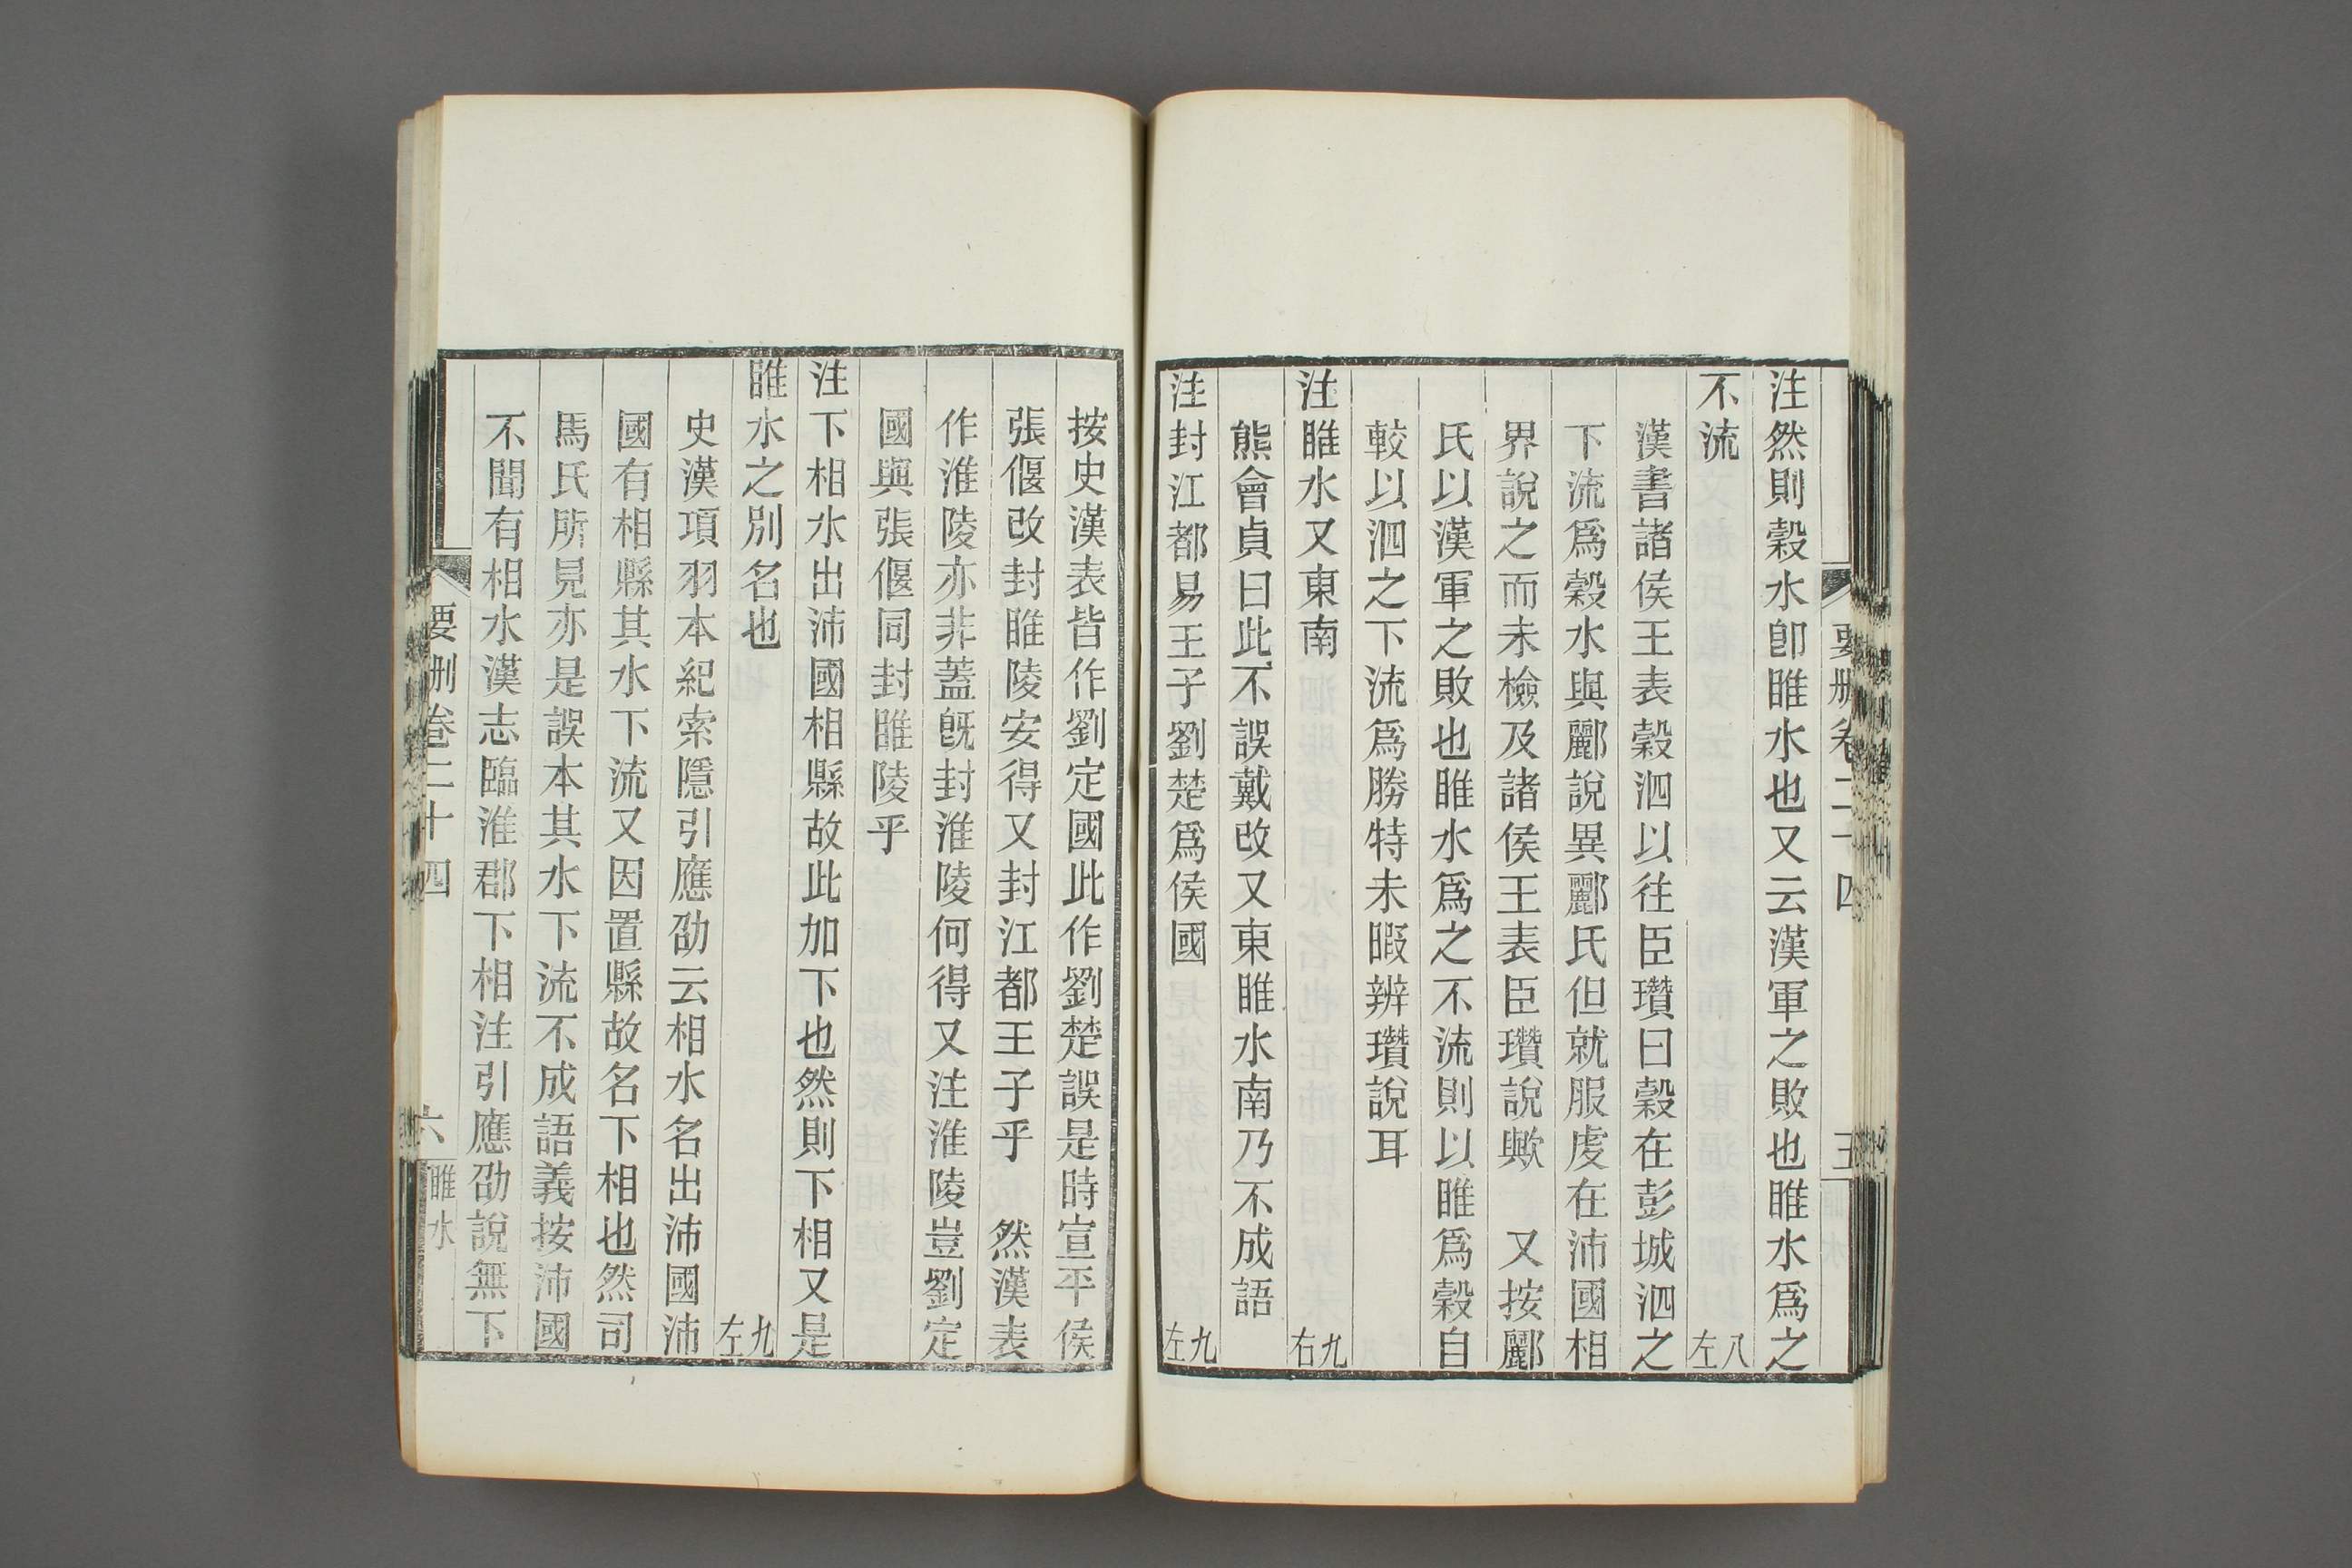 要刪卷二十四　五
注然則穀水卽睢水也又云漢軍之敗也睢水爲之
不流　八左
漢書諸侯王表穀泗以往臣瓚曰穀在彭城泗之
下流爲穀水與酈說異酈氏但就服虔在沛國相
界說之而未檢及諸侯王表臣瓚說歟　又按酈
氏以漢軍之敗也睢水爲之不流則以睢爲穀自
較以泗之下流爲勝特未暇辨瓚說耳
注睢水又東南　九右
熊會貞曰此不誤戴改又東睢水南乃不成語
注封江都易王子劉楚爲侯國　九左
按史漢表皆作劉定國此作劉楚誤是時宣平侯
張偃改封睢陵安得又封江都王子乎　然漢表
作淮陵亦非蓋旣封淮陵何得又注淮陵豈劉定
國與張偃同封睢陵乎
注下相水出沛國相縣故此加下也然則下相又是
睢水之別名也　九左
史漢項羽本紀索隱引應劭云相水名出沛國沛
國有相縣其水下流又因置縣故名下相也然司
馬氏所見亦是誤本其水下流不成語義按沛國
不聞有相水漢志臨淮郡下相注引應劭說無下
要刪卷二十四　六　睢水